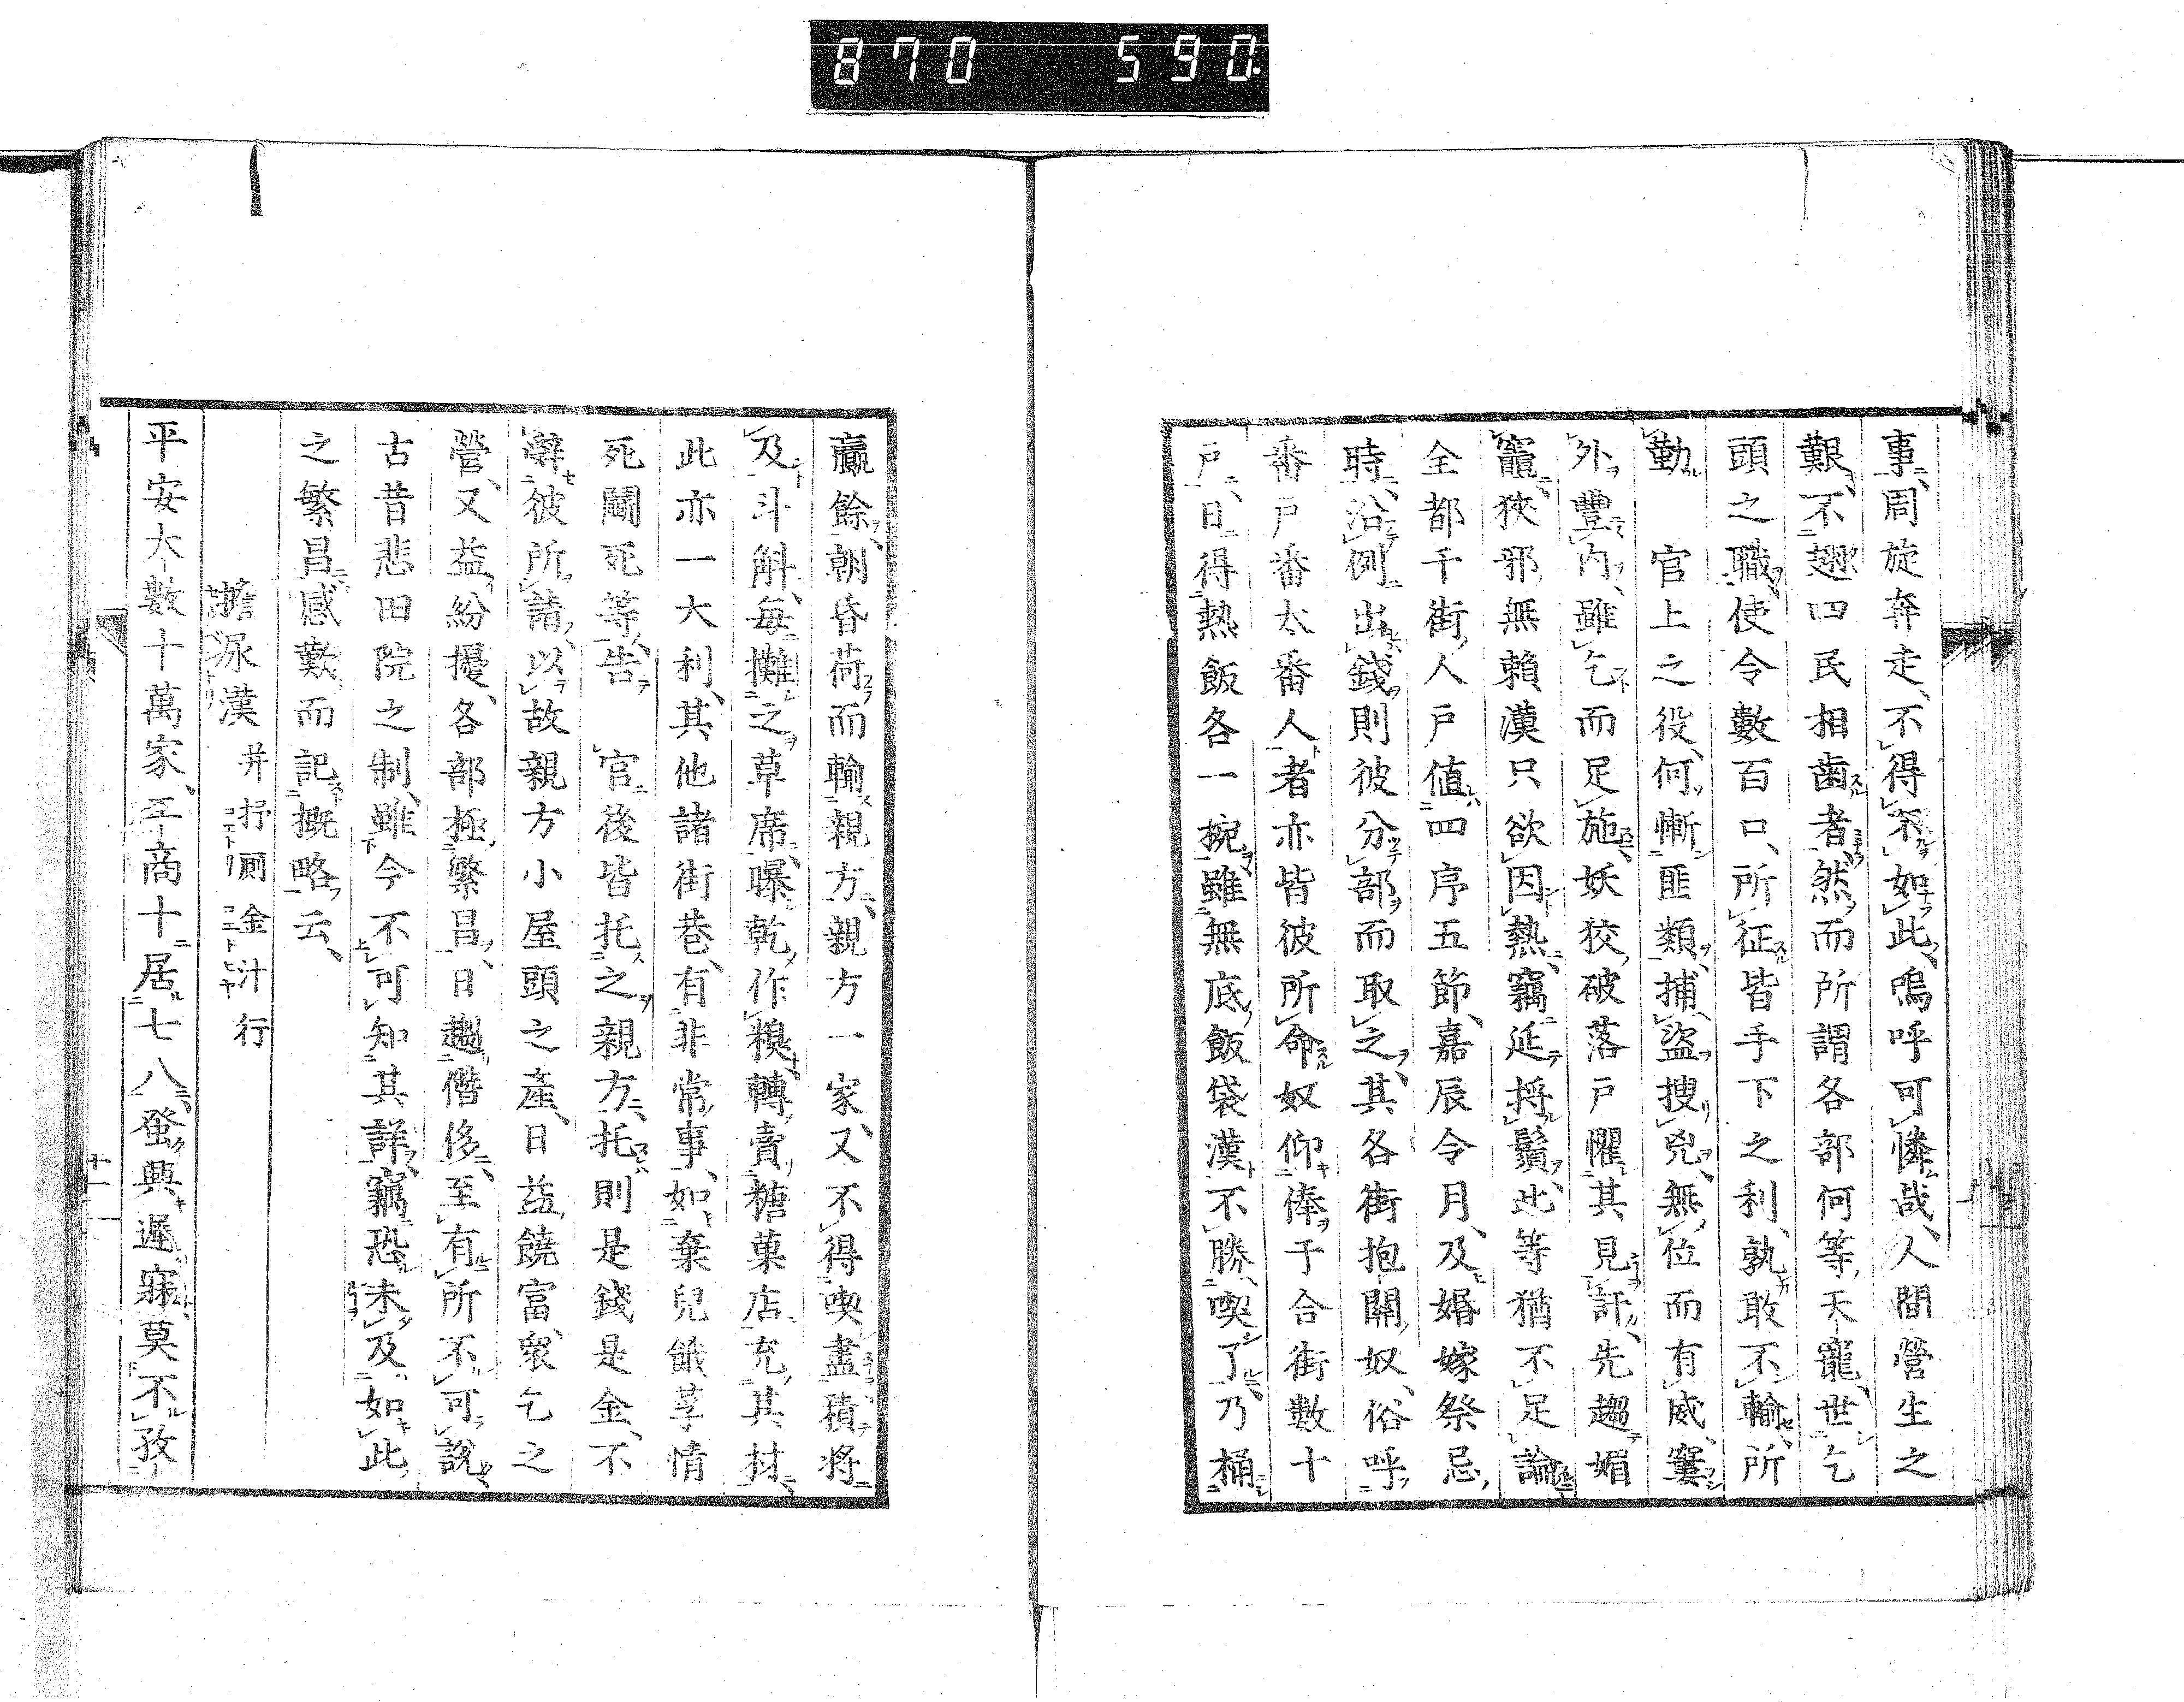 870 590.
事、周旋奔走、不得不如此、嗚呼可憐哉、人間營生之
艱、不趣四民相齒者、然而所謂各部何等天寵、世乞
頭之職、使令數百口、所征皆手下之利、孰敢不輸、所
勤 官上之役、何慚匪類、捕盜搜兇、無位而有威、窶
外豐內、雖乞而足施、妖狡破落戶懼其見訐、先趨媚
竈、狹邪無賴漢只欲因熱、竊延捋鬚、此等猶不足論
全都千街、人戶値四序五節、嘉辰令月、及婚嫁祭忌
時、沿例出錢、則彼分部而取之、其各街抱關奴、俗呼
番戶番太番人者亦皆彼所命奴仰俸于合街數十
戶、日得熱飯各一椀、雖無底飯袋漢不勝喫了、乃桶
贏餘、朝昏荷而輸親方、親方一家、又不得喫盡、積將
及斗斛、每攤之草席、曝乾作糗、轉賣糖菓店充其材、
此亦一大利、其他諸街巷、有非常事、如棄兒餓莩情
死鬪死等、告 官後皆托之親方、托則是錢是金、不
辭彼所請、以故親方小屋頭之產、日益饒富、衆乞之
營、又益紛擾、各部極繁昌、日趨僭侈、至有所不可說
古昔悲田院之制、雖今不可知其詳、竊恐未及如此
之繁昌、感歎而記概略云、
擔尿漢 并 抒厠 金汁行
コエトリ コエトヒヤ
平安大數十萬家、工商十居七八、發興遲寐、莫不孜
十一